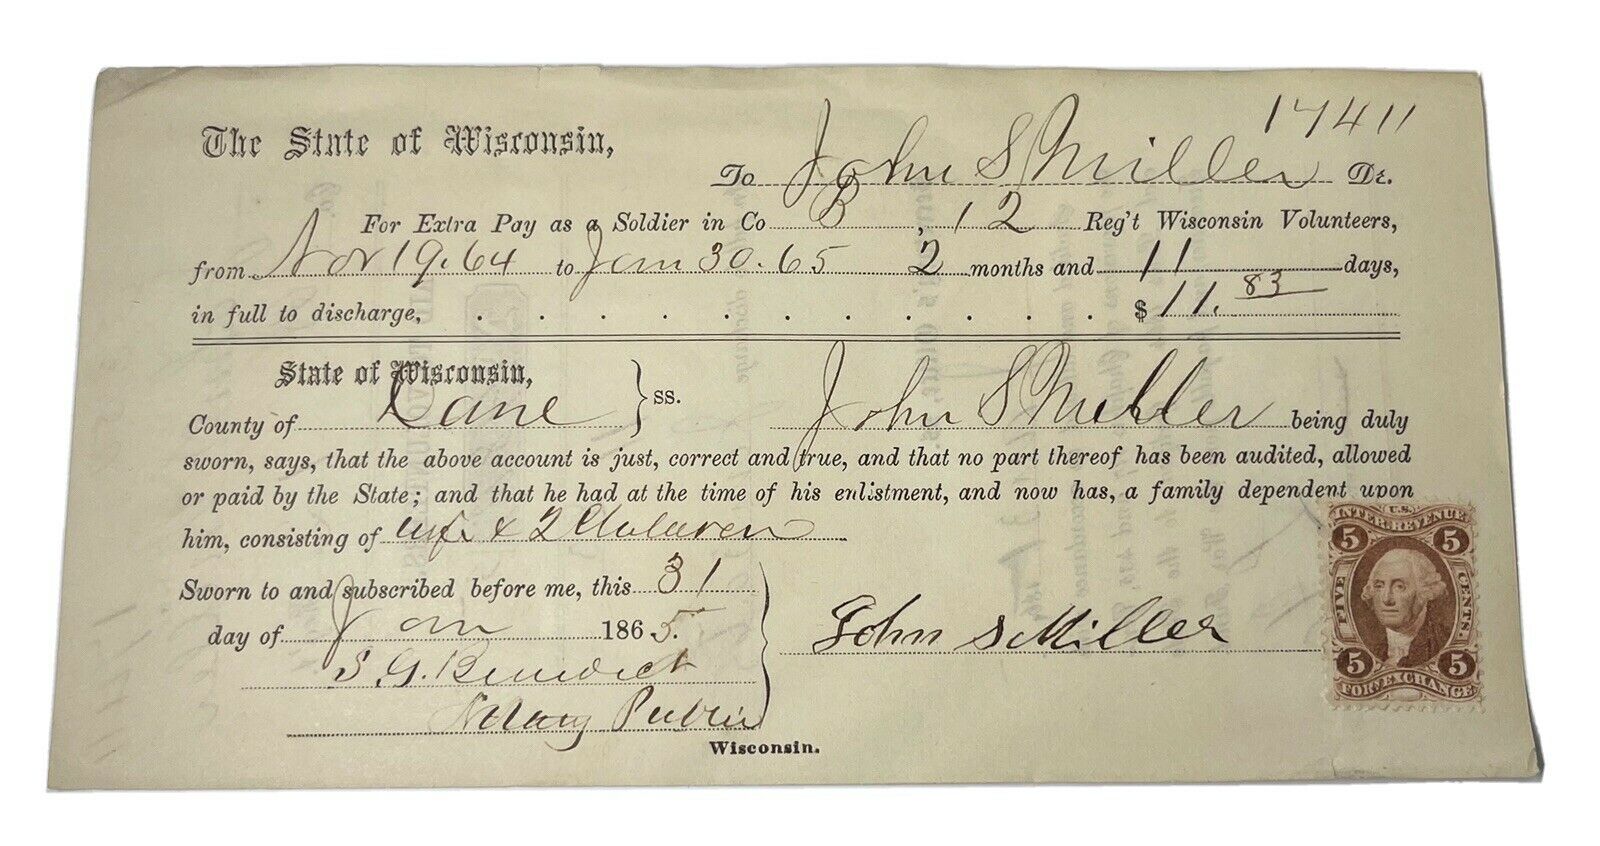 17411
The State of Wisconsin,
To John S Miller Dr.
For Extra Pay as a Soldier in Co B, 12 Reg't Wisconsin Volunteers,
from Nov 19. 64 to Jan 30. 65 2 months and 11 days,
in full to discharge, . . . . . . . . . . . . $11. 83
State of Wisconsin, } ss.
County of Dane John S Miller being duly
sworn, says, that the above account is just, correct and true, and that no part thereof has been audited, allowed
or paid by the State; and that he had at the time of his enlistment, and now has, a family dependent upon
him, consisting of wife & 2 Children
Sworn to and subscribed before me, this 31
day of Jan 1865.
John S Miller
S. G. Benedict
Notary Public
Wisconsin.
U.S.
5 INTER. REVENUE 5
FIVE CENTS.
5 FOR. EXCHANGE 5